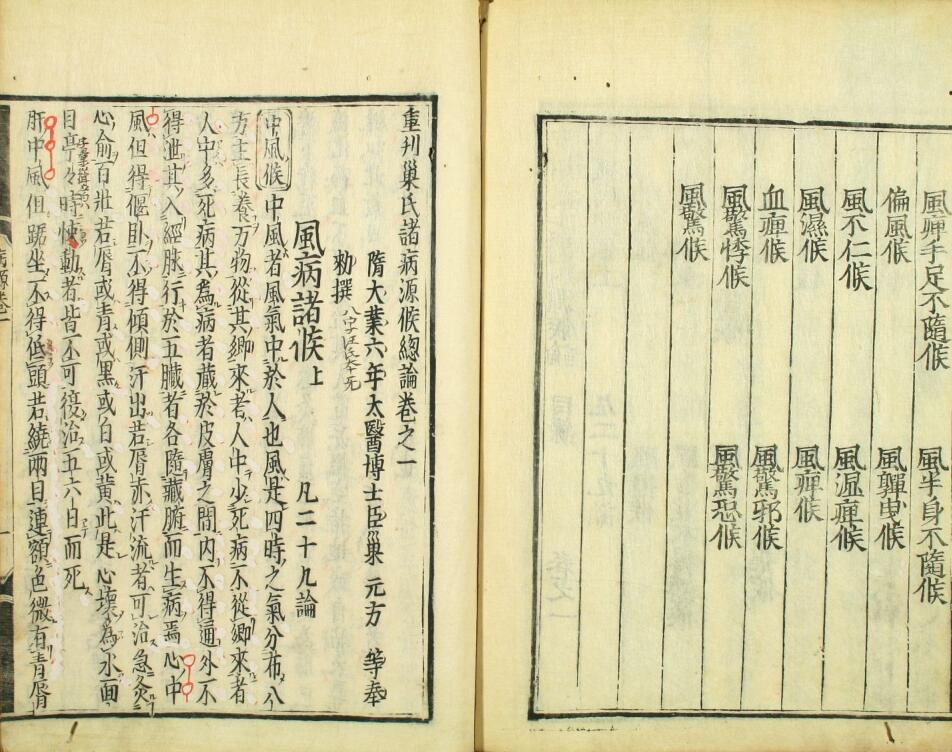 風痺手足不隨候 風半身不隨候
偏風候 風嚲曳候
風不仁候 風溼痺候
風濕候 風痺候
血痺候 風驚邪候
風驚悸候 風驚恐候
風驚候
重刋巢氏諸病源候總論卷之一
隋大業六年太醫博士臣巢元方 等奉
勑撰
風病諸候上 凡二十九論
中風候 中風者風氣中於人也風是四時之氣分布八
方主長養万物從其鄉來者人中少死病不從鄉來者
人中多死病其為病者藏於皮膚之間内不得通外不
得泄其入經脉行於五臟者各隨藏腑而生病焉心中
風但得偃臥不得傾側汗出若脣赤汗流者可治急灸
心俞百壯若脣或青或黑或白或黃此是心壞為水面
目亭々時悚動者皆不可復治五六日而死
肝中風但踞坐不得低頭若繞兩目連額色微有青脣
病源卷一